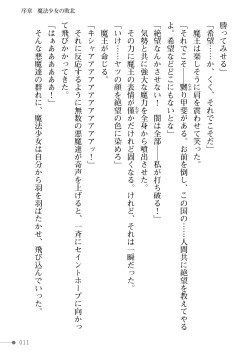 序章　魔法少女の敗北
勝ってみせる」
「希望……か、くくく、それでこそだ」
　魔王は楽しそうに肩を震わせて笑った。
「それでこそ――嬲り甲斐がある。お前を倒し、この国の……人間共に絶望を教えてやる
よ、希望などどこにもないとな」
「絶望なんかさせない！　闇は全部――私が打ち払う」
　気勢と共に強大な魔力を全身から噴出させた。
　その力に魔王の表情が僅かだけれど固くなる。けれど、それは一瞬だった。
「いけ……ヤツの顔を絶望の色に染めろ」
　魔王が命じる。
「キシャアアアアアアアアアアアッ！」
　それに反応するように無数の悪魔達が奇声を上げると、一斉にセイントホープに向かっ
て飛びかかってきた。
「はぁあああああ！」
　そんな悪魔達の群れに、魔法少女は自分から羽を羽ばたかせ、飛び込んでいった。
011